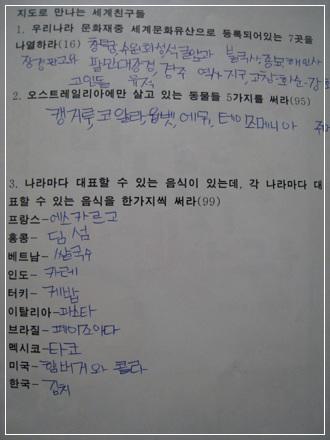 지도로 만나는 세계친구들
1. 우리나라 문화재중 세계문화유산으로 등록되어있는 7곳을
나열하라(16) 창덕궁, 수원화성, 석굴암과 불국사, 종묘, 해인사
장경판고와 팔만대장경, 경주 역사 지구, 고창·화순·강화
고인돌 유적
2. 오스트레일리아에만 살고 있는 동물들 5가지를 써라(95)
캥거루, 코알라, 웜벳, 에뮤, 테이즈메니아 주
3. 나라마다 대표할 수 있는 음식이 있는데, 각 나라마다 대
표할 수 있는 음식을 한가지씩 써라(99)
프랑스-에스카르고
홍콩-딤섬
베트남-쌀국수
인도-카레
터키-케밥
이탈리아-파스타
브라질-페이조아다
멕시코-타코
미국-햄버거와 콜라
한국-김치